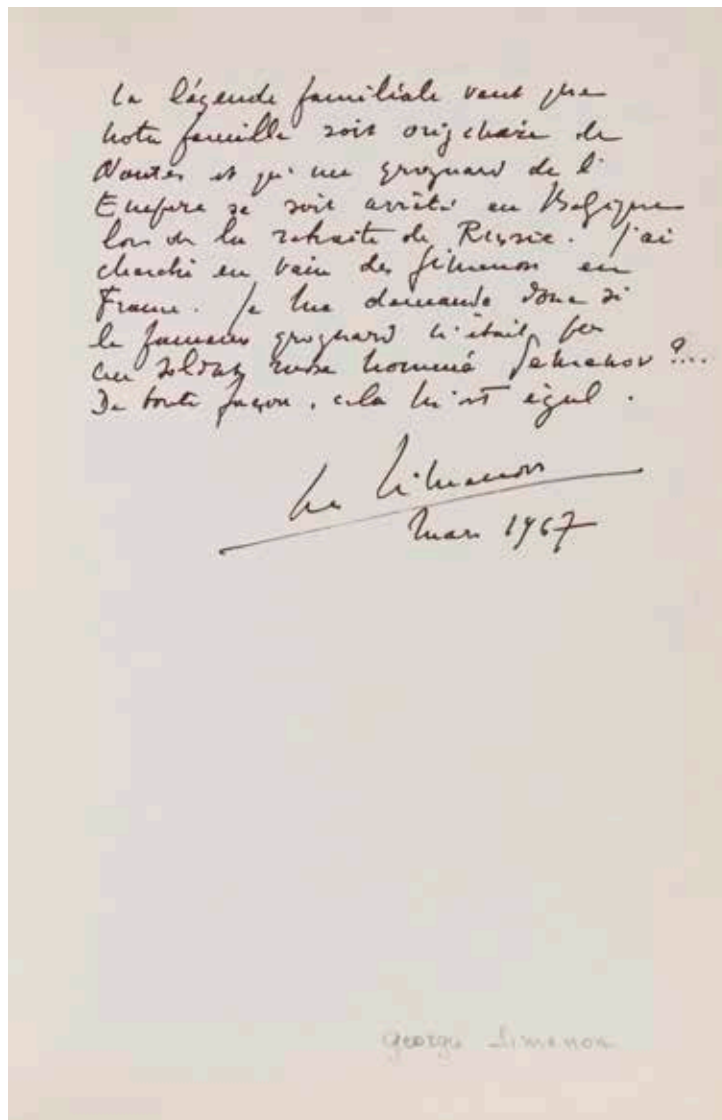 La légende familiale veut que
notre famille soit originaire de
Nantes et qu'un grognard de l'
Empire se soit arrêté en Belgique
lors de la retraite de Russie. J'ai
cherché en vain des Simenon en
France. Je me demande donc si
le fameux grognard n'était pas
un soldat russe nommé Semenov ?...
De toute façon, cela m'est égal.
Simenon
Mars 1967
Georges Simenon